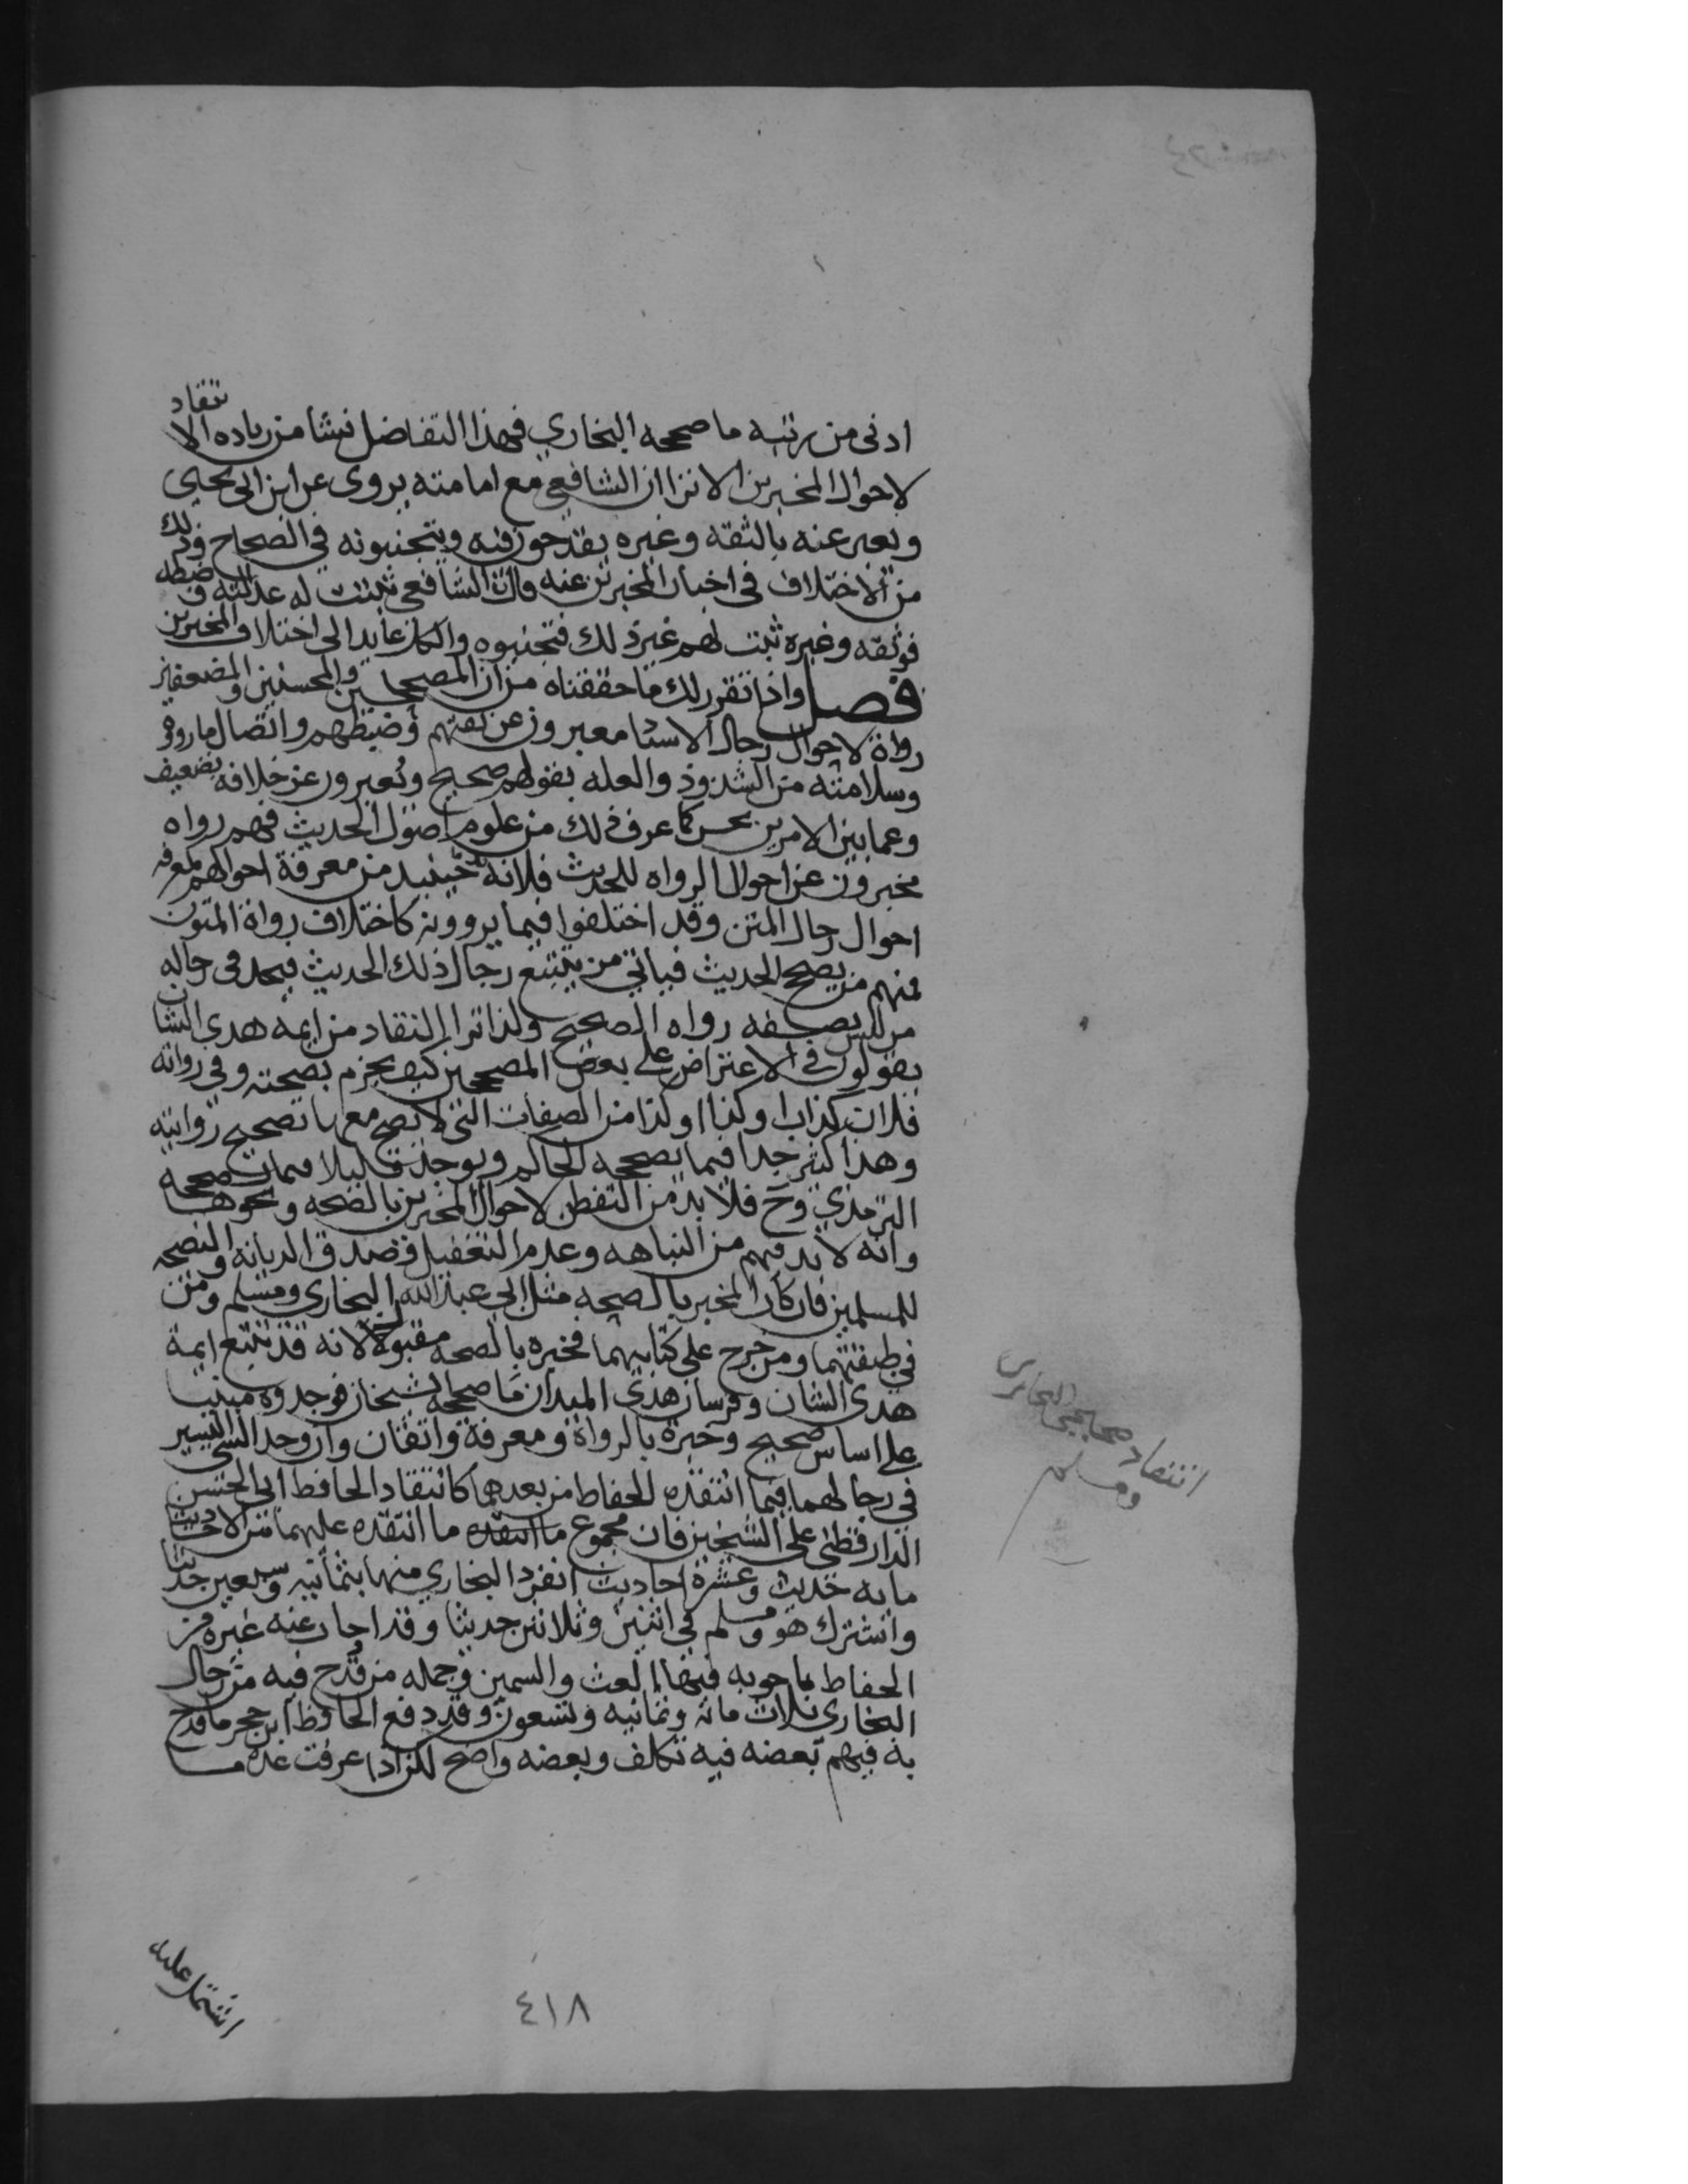 ادنى من رتبه ما صححه البخاري فهذا التفاضل نشا من زياده الانتقاد
لاحوال المخبرين الا ترا ان الشافعي مع امامته يروى عن ابن ابى يحيى
ويعبر عنه بالثقه وغيره يقدحون فيه ويتجنبونه في الصحاح وذلك
من الاختلاف فى اخبار المخبرين عنه فان الشافعى ثبتت له عدالته وضبطه
فوثقه وغيره ثبت لهم غير ذلك فتجنبوه والكل عايد الى اختلاف المخبرين
فصل واذا تقرر لك ما حققناه من ان المصححين والمحسنين والمضعفين
رواة لاحوال رجال الاسناد معبرون عن ثقتهم وضبطهم واتصال ما رووه
وسلامته من الشذوذ والعله بقولهم صحيح ويعبرون عن خلافه بضعيف
وعما بين الامرين بحسن كما عرف ذلك من علوم اصول الحديث فهم رواه
مخبرون عن احوال الرواه للحديث فلابد حينيد من معرفة احوالهم لمعرفه
احوال رجال المتن وقد اختلفوا فيما يروونه كاختلاف رواة المتون
فمنهم من يصحح الحديث فياتي من يتتبع رجال ذلك الحديث فيجد فى رجاله
من ليس بصفه رواه الصحيح ولذا ترا النقاد من ايمه هدى الشان
يقولون في الاعتراض على بعض المصححين كيف يجزم بصحته وفي رواته
فلان كذاب وكذا وكذا من الصفات التى لا يصح معها تصحيح روايته
وهذا كثير جدا فيما يصححه الحاكم ويوجد قليلا فيما صححه
الترمذي وح فلا بد من التفطن لاحوال المخبرين بالصحه ونحوها
وانه لا بد فيهم من النباهه وعدم التغفيل وصدق الديانه والنصحه
للمسلمين فان كان المخبر بالصحه مثل ابى عبد الله البخاري ومسلم ومن
في طبقتهما ومن خرج على كتابيهما فخبره بالصحه مقبولا لانه قد تتبع ايمة
هدى الشان وفرسان هذى الميدان ما صححه الشيخان فوجدوه مبنيا
على اساس صحيح وخبرة بالرواة ومعرفة واتقان وان وجد الشى اليسير
في رجالهما فيما انتقده الحفاظ من بعدهما كانتقاد الحافظ ابى الحسن
الدارقطنى على الشيخين فان مجموع ما انتقده ما انتقده عليهما من الاحاديث
مايه حديث وعشرة احاديث انفرد البخاري منها بثمانيه وسبعين حديثا
واشترك هو ومسلم فى اثنين وثلاثين حديثا وقد اجاب عنه غيره من
الحفاظ باجوبه فيها الغث والسمين وجمله من قدح فيه من رجال
البخاري ثلاث مائه وثمانيه وتسعون وقد دفع الحافظ ابن حجر ما قدح
به فيهم بعضه فيه تكلف وبعضه واضح لكن اذا عرفت عدة ما
اشتمل عليه
انتقاد صحيحي البخارى
ومسلم
٤١٨